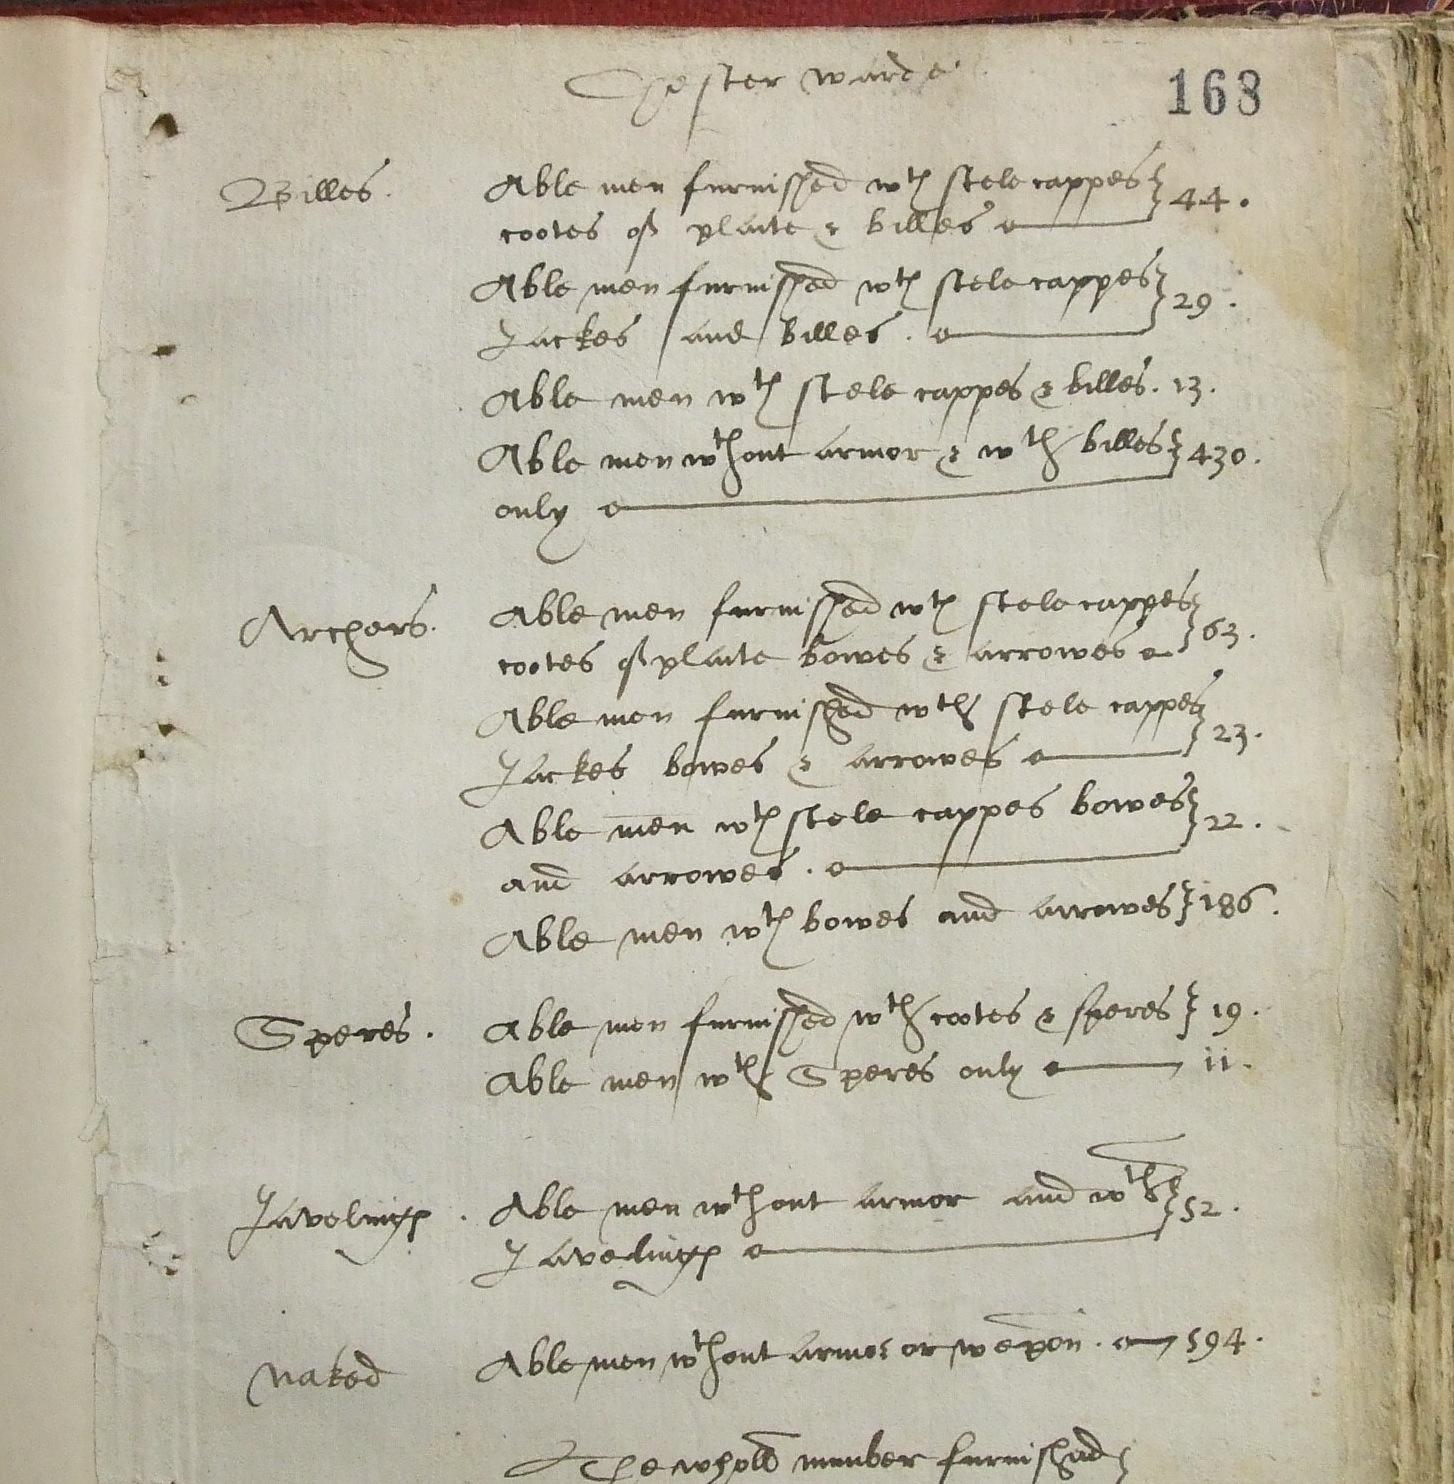 Chester warde
168
Billes. Able men furnished wth stele cappes
cootes of plaite & billes 44.
Able men furnished wth stele cappes
Jackes and billes. 29.
Able men wth stele cappes & billes. 13.
Able men wthout armor & wth billes 430.
only
Archers. Able men furnished wth stele cappes
cootes of plaite bowes & arrowes 63.
Able men furnished wth stele cappes
Jackes bowes & arrowes 23.
Able men wth stele cappes bowes
and arrowes. 22.
Able men wth bowes and arrowes 186.
Speres. Able men furnished wth cootes & speres 19.
Able men wth Speres only 11.
Javelinges. Able men wthout armor and wth
Javelinges 52.
Naked Able men wthout armor or wepon. 594.
The whole number furnished